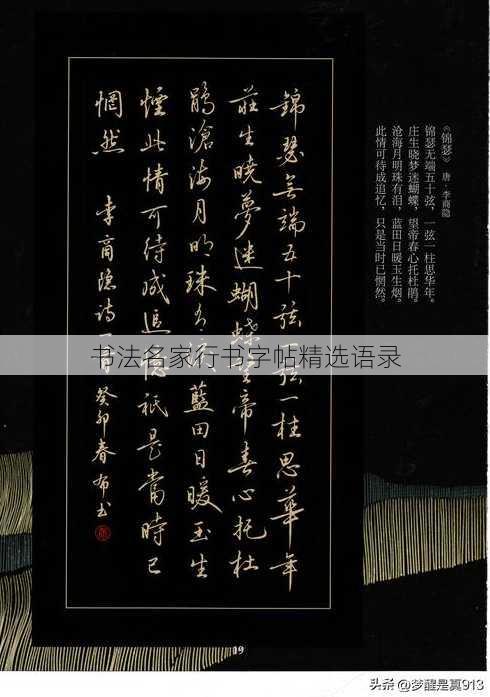 《锦瑟》 唐·李商隐
锦瑟无端五十弦,一弦一柱思华年。
庄生晓梦迷蝴蝶,望帝春心托杜鹃。
沧海月明珠有泪,蓝田日暖玉生烟。
此情可待成追忆,只是当时已惘然。
錦瑟無端五十弦一弦一柱思華年
莊生曉夢迷蝴蝶望帝春心托杜
鵑滄海月明珠有泪藍田日暖玉生
煙此情可待成追憶衹是當時已
惘然 李商隱詩一首癸卯春布书
书法名家行书字帖精选语录
19
头条 @梦醒是真913